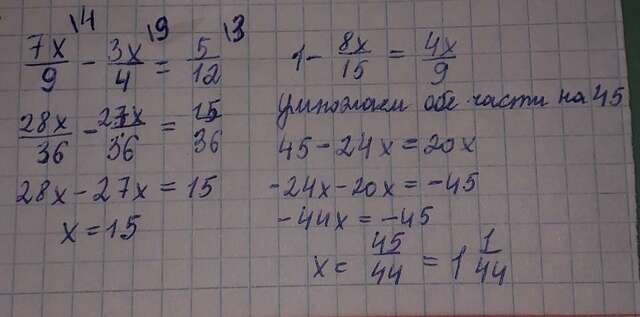 7x/9 \4 - 3x/4 \9 = 5/12 \3
28x/36 - 27x/36 = 15/36
28x - 27x = 15
x = 15
1 - 8x/15 = 4x/9
умножаем обе части на 45
45 - 24x = 20x
-24x - 20x = -45
-44x = -45
x = 45/44 = 1 1/44